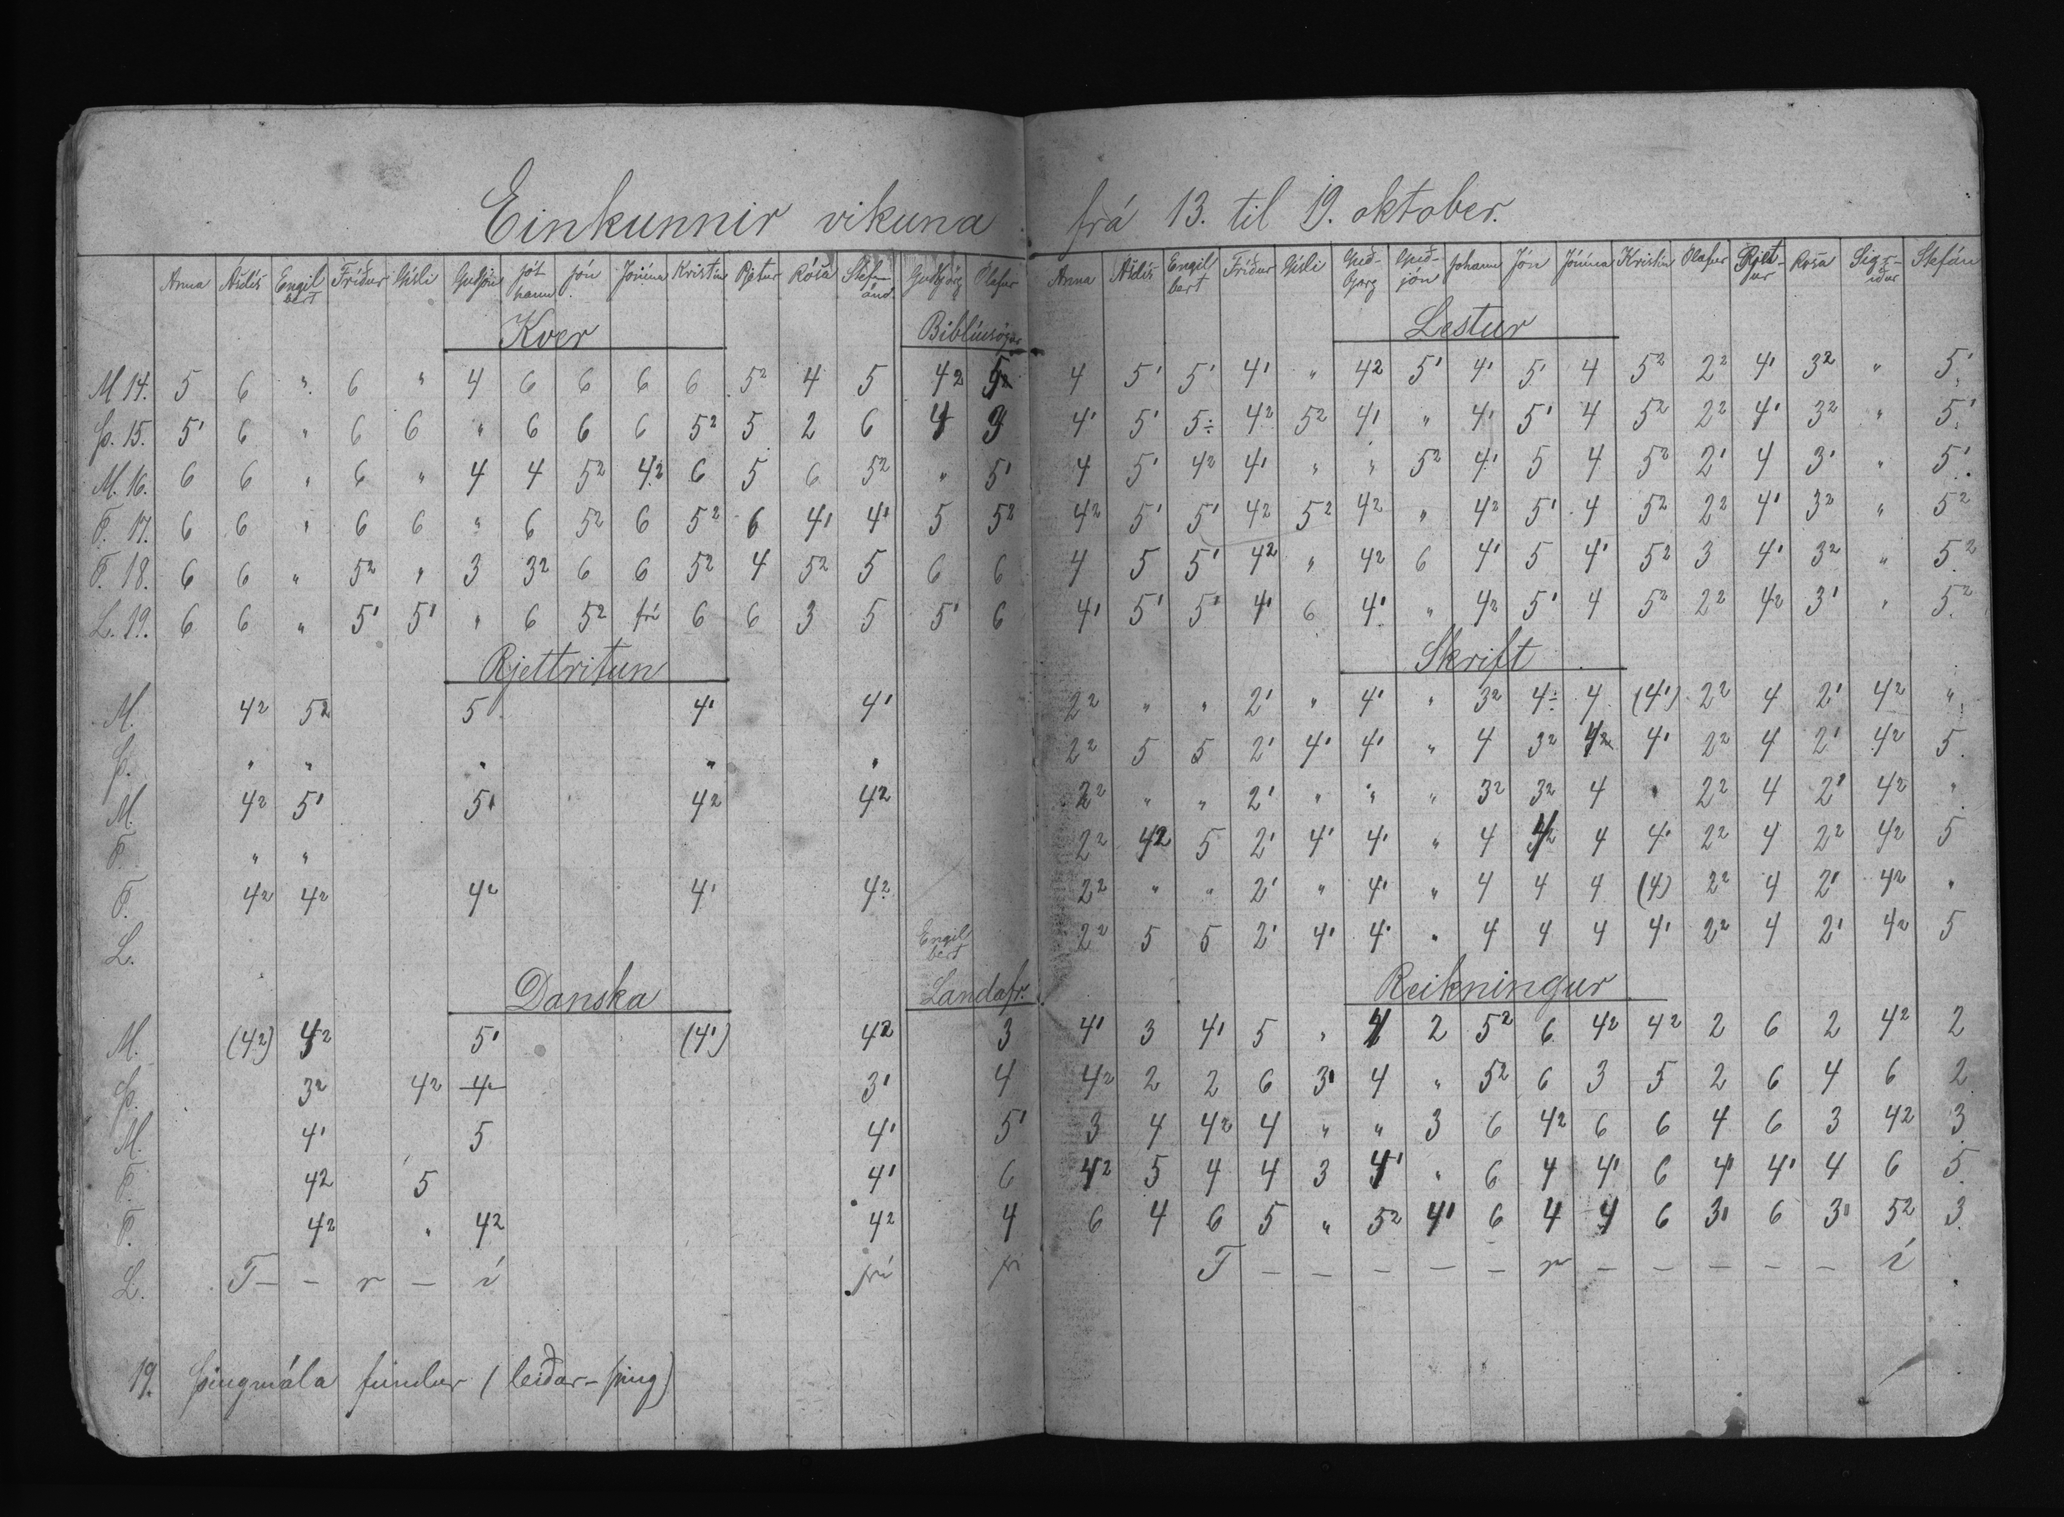 Einkunnir vikuna frá 13. til 19. oktober.
Anna Ásdís Engilbert Fríður Gísli Guðjón Jóhann Jón Jónína Kristín Pjetur Rósa Stefánd. Guðbjörg Ólafur
Kver Biblíusögur
M 14. 5 6 " 6 " 4 6 6 6 6 5² 4 5 4² 5²
Þ. 15. 5' 6 " 6 6 " 6 6 6 5² 5 2 6 4
M. 16. 6 6 " 6 " 4 4 5² 4² 6 5 6 5² " 5'
F. 17. 6 6 " 6 6 " 6 5² 6 5² 6 4' 4' 5 5²
F. 18. 6 6 " 5² " 3 3² 6 6 5² 4 5² 5 6 6
L. 19. 6 6 " 5' 5' " 6 5² frí 6 6 3 5 5' 6
Rjettritun
M. 4² 5² 5 4' 4'
Þ. " " " " "
M. 4² 5' 5' 4² 4²
F. " "
F. 4² 4² 4² 4' 4²
L. Engilbert
Danska Landafr.
M. (4²) 4² 5' (4') 4² 3
Þ. 3² 4² 4 3' 4
M. 4' 5 4' 5'
F. 4² 5 4' 6
F. 4² " 4² 4² 4
L. F – – r – í frí fr
19. Þingmála fundur (leiðar-þing)
Anna Ásdís Engilbert Fríður Gísli Guðbjörg Guðjón Johann Jón Jónína Kristín Olafur Pjetur Rosa Sigríður Stefán
Lestur
4 5' 5' 4' " 4² 5' 4' 5' 4 5² 2² 4' 3² " 5'
4' 5' 5÷ 4² 5² 4' " 4' 5' 4 5² 2² 4' 3² " 5'
4 5' 4² 4' " " 5² 4' 5 4 5² 2' 4 3' " 5'
4² 5' 5' 4² 5² 4² " 4² 5' 4 5² 2² 4' 3² " 5²
4 5 5' 4² " 4² 6 4' 5 4' 5² 3 4' 3² " 5²
4' 5' 5' 4' 6 4' " 4² 5' 4 5² 2² 4² 3' " 5²
Skrift
2² " " 2' " 4' " 3² 4÷ 4 (4') 2² 4 2' 4² "
2² 5 5 2' 4' 4' " 4 3² 4² 4' 2² 4 2' 4² 5
2² " " 2' " " " 3² 3² 4 " 2² 4 2' 4² "
2² 4² 5 2' 4' 4' " 4 4² 4 4' 2² 4 2² 4² 5
2² " " 2' " 4' " 4 4 4 (4) 2² 4 2' 4² "
2² 5 5 2' 4' 4' " 4 4 4 4' 2² 4 2' 4² 5
Reikningur
4' 3 4' 5 " 4 2 5² 6 4² 4² 2 6 2 4² 2
4² 2 2 6 3' 4 " 5² 6 3 5 2 6 4 6 2
3 4 4² 4 " " 3 6 4² 6 6 4 6 3 4² 3
4² 5 4 4 3 4' " 6 4 4' 6 4' 4' 4 6 5
6 4 6 5 " 5² 4' 6 4 4 6 3' 6 3' 5² 3
F – – – – – r – – – – – í